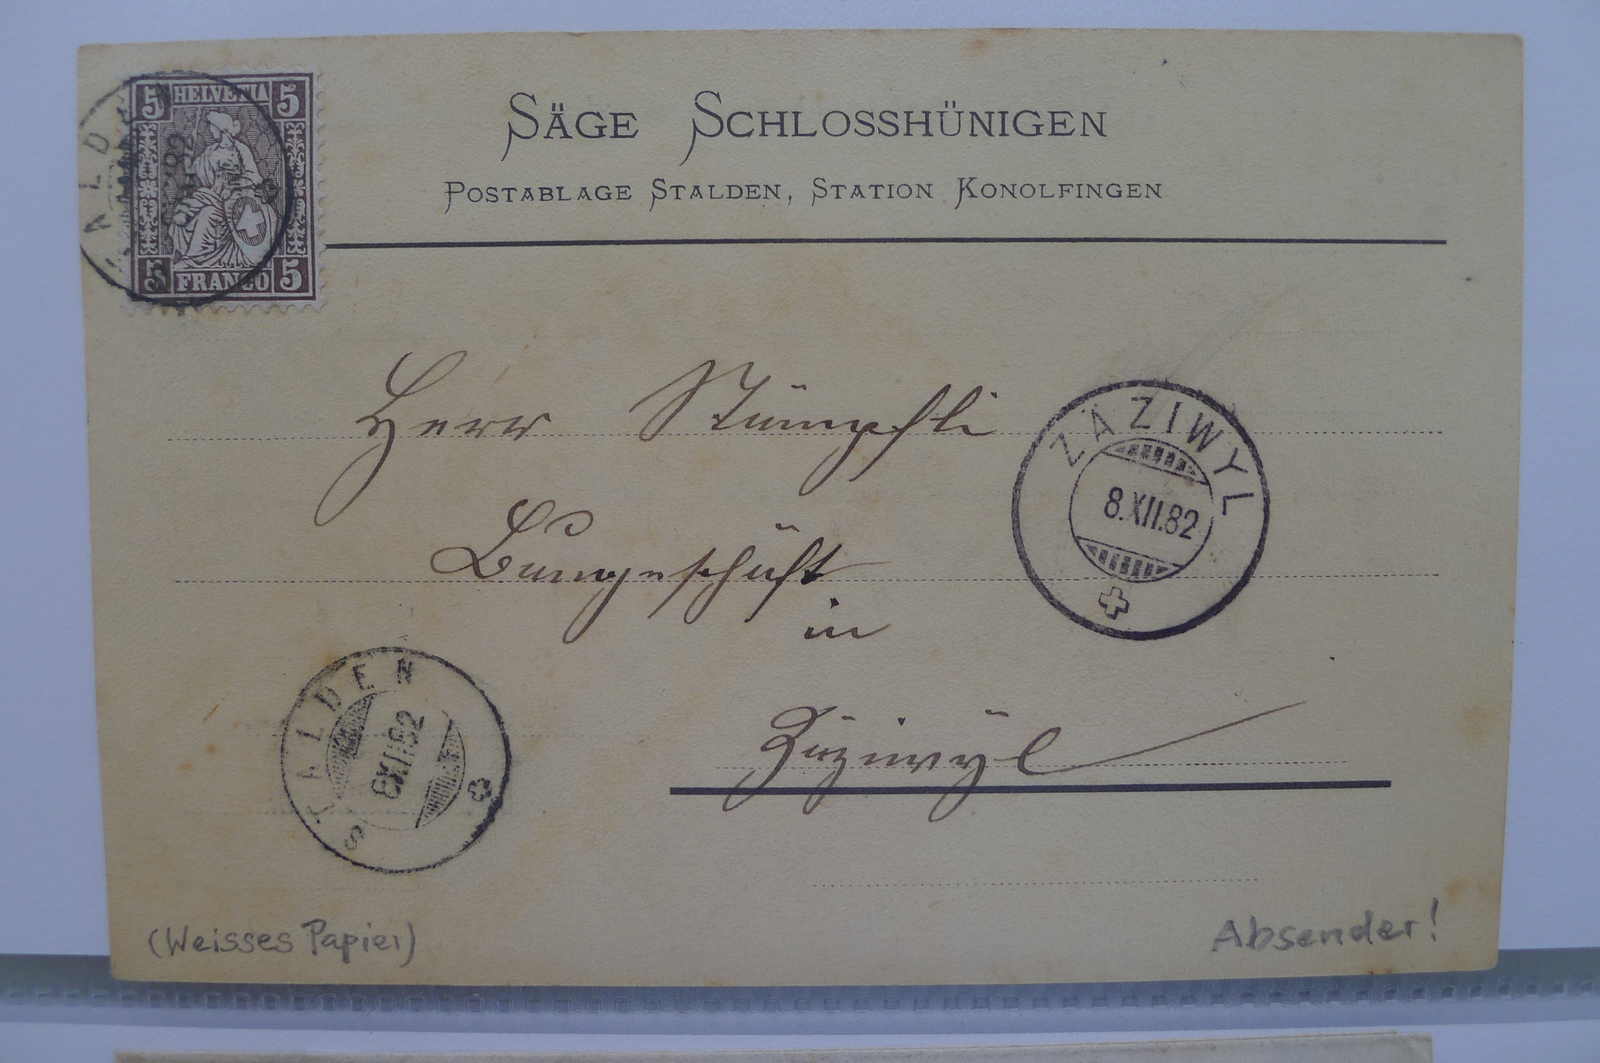 5 HELVETIA 5
5 FRANCO 5
SÄGE SCHLOSSHÜNIGEN
POSTABLAGE STALDEN, STATION KONOLFINGEN
Herr Stümpfli
Baugeschäft
in
Zäziwyl
ZÄZIWYL
8.XII.82
STALDEN
8.XII.82
(Weisses Papier)
Absender!